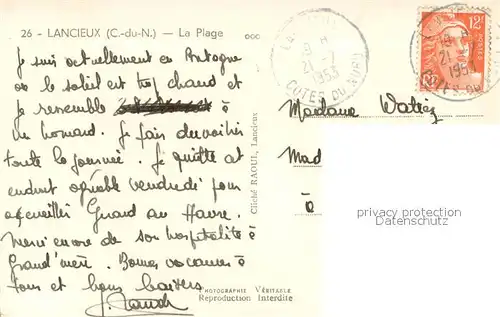 26 - LANCIEUX (C.-du-N.) — La Plage
Je suis actuellement en Bretagne
ou le soleil est trop chaud et
je ressemble à
un homard. Je fais du voilier
toute la journée. Je quitte cet
endroit agréable vendredi pour
accueillir Gérard au Havre.
Merci encore de son hospitalité à
Grand'mère. Bonnes vacances à
tous et bons baisers
Cliché RAOUL, Lancieux
PHOTOGRAPHIE VÉRITABLE
Reproduction Interdite
9 H
21-7
1953
COTES DU NORD
12F
POSTES
RF
21
1953
Madame
Mad
à
privacy protection
Datenschutz